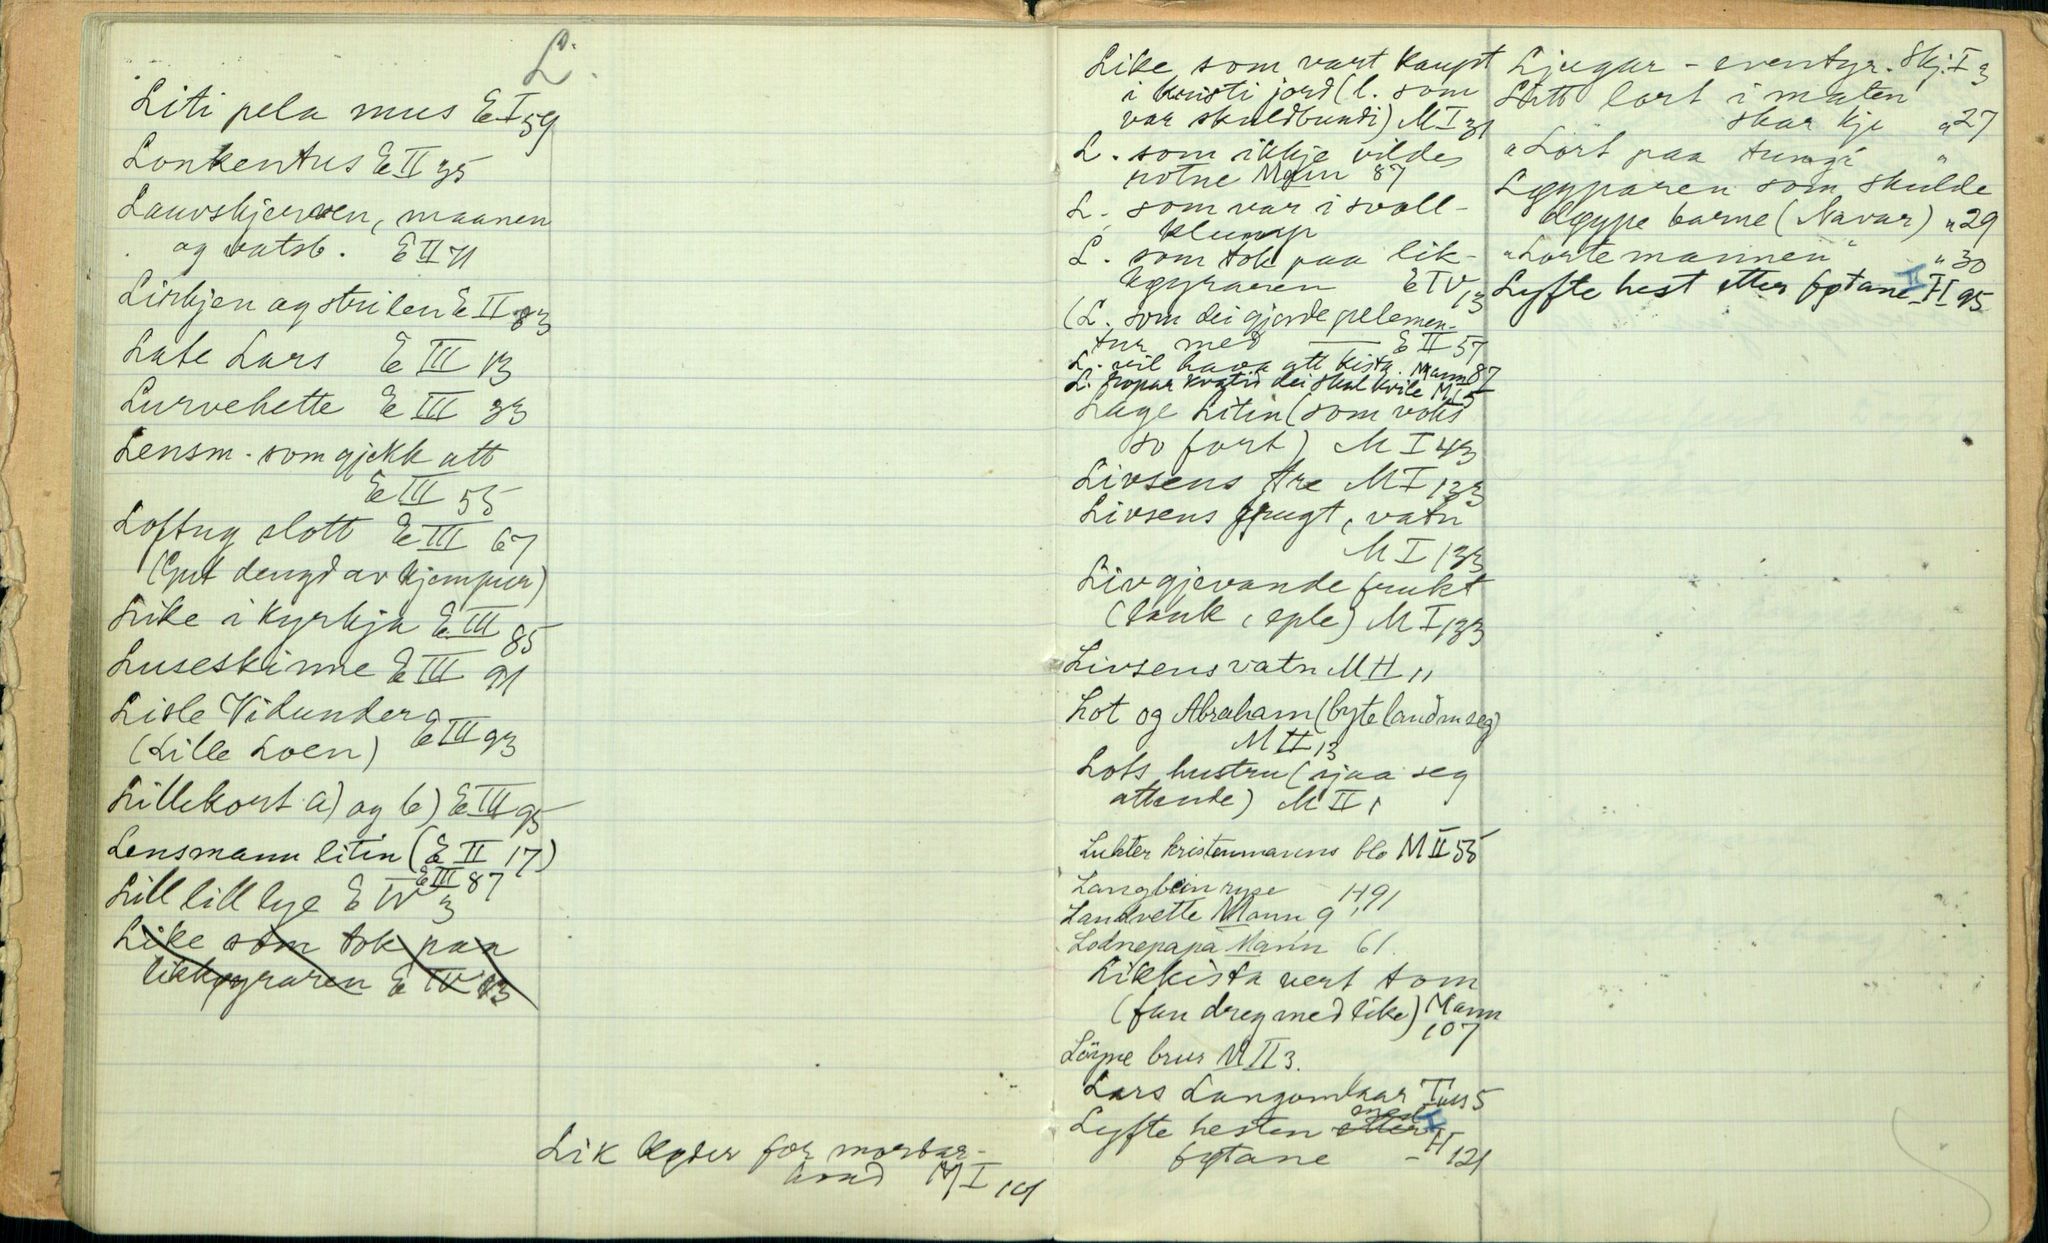 L.
Liti pela mus E I 59
Lonkentus E II 35
Lauvskjerven, maanen
og vatsb. E II 71
Liskjen og strilen E II 83
Late Lars E III 13
Lurvehette E III 33
Lensm. som gjekk att
E III 55
Loftug slott E III 67
(Gut dengd av kjempur)
Like i kyrkja E III 85
Luseskinne E III 91
Lisle Vidunder
(Lille Loen) E III 93
Lillekort a) og b) E III 95
Lensmann litin (E II 17)
E III 87
Lill lill lye E IV 3
Like som tok paa
likkøyraren E IV 13
Lik for
M I 101
Like som vart kaupt
i kristi jord (l. som
var skuldbundi) M I 31
L. som ikkje vilde
rotne Mann 87
L. som var i svoll-
klump
L. som tok paa lik-
køyraren E IV 13
(L. som dei gjorde pelemen-
tur med — E II 57
L. vil hava att kista. Mann 87
L. ropar dei skal kvile M I 5
Lage Litin (som voks
so fort) M I 43
Livsens tre M I 133
Livsens frugt, vatn
M I 133
Livgjevande frukt
(lauk, eple) M I 133
Livsens vatn M II 11
Lot og Abraham (byte land m seg)
M II 13
Lots hustru (sjaa seg
attende) M II 1
Lukter kristenmanns blo M II 55
Langbein ryse H 91
Landvette Mann 9,
Lodnepapa Mann 61.
Likkista vert tom
(fan dreg med like) Mann
107
Løype brur M II 3.
Lars Langomlaar Tuss 5
Lyfte hesten etter med II
føtane - H 121
Ljugar - eventyr. Skj. I 3
Litt lort i maten
skar kje " 27
"Lort paa tungi "
Løyparen som skulde
løype barne (Navar) " 29
"Lortemannen" " 30
Lyfte hest etter føtane II H 95